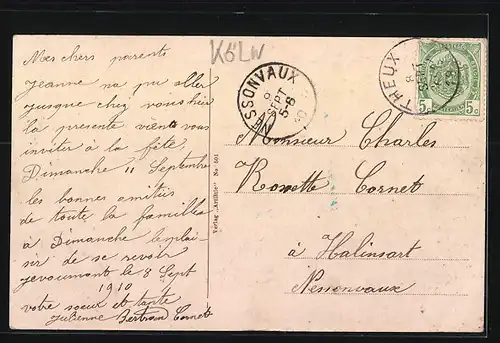 KÖLN
Mes chers parents
Jeanne na pu aller
jusque chez vous hier
la presente vient vous
inviter à la fête
Dimanche 11 Septembre
les bonnes amitiés
de toute la familles
à Dimanche le plai-
sir de se revoir
jevoumont le 8 Sept
1910
votre soeux et tante
Julienne Bertrand Cornet
Verlag "Artibis" No 501
NESSONVAUX
9
SEPT
5-6
THEUX
8
SEPT
5c 5c
Monsieur Charles
Roxette Cornet
à Halinsart
Nessonvaux